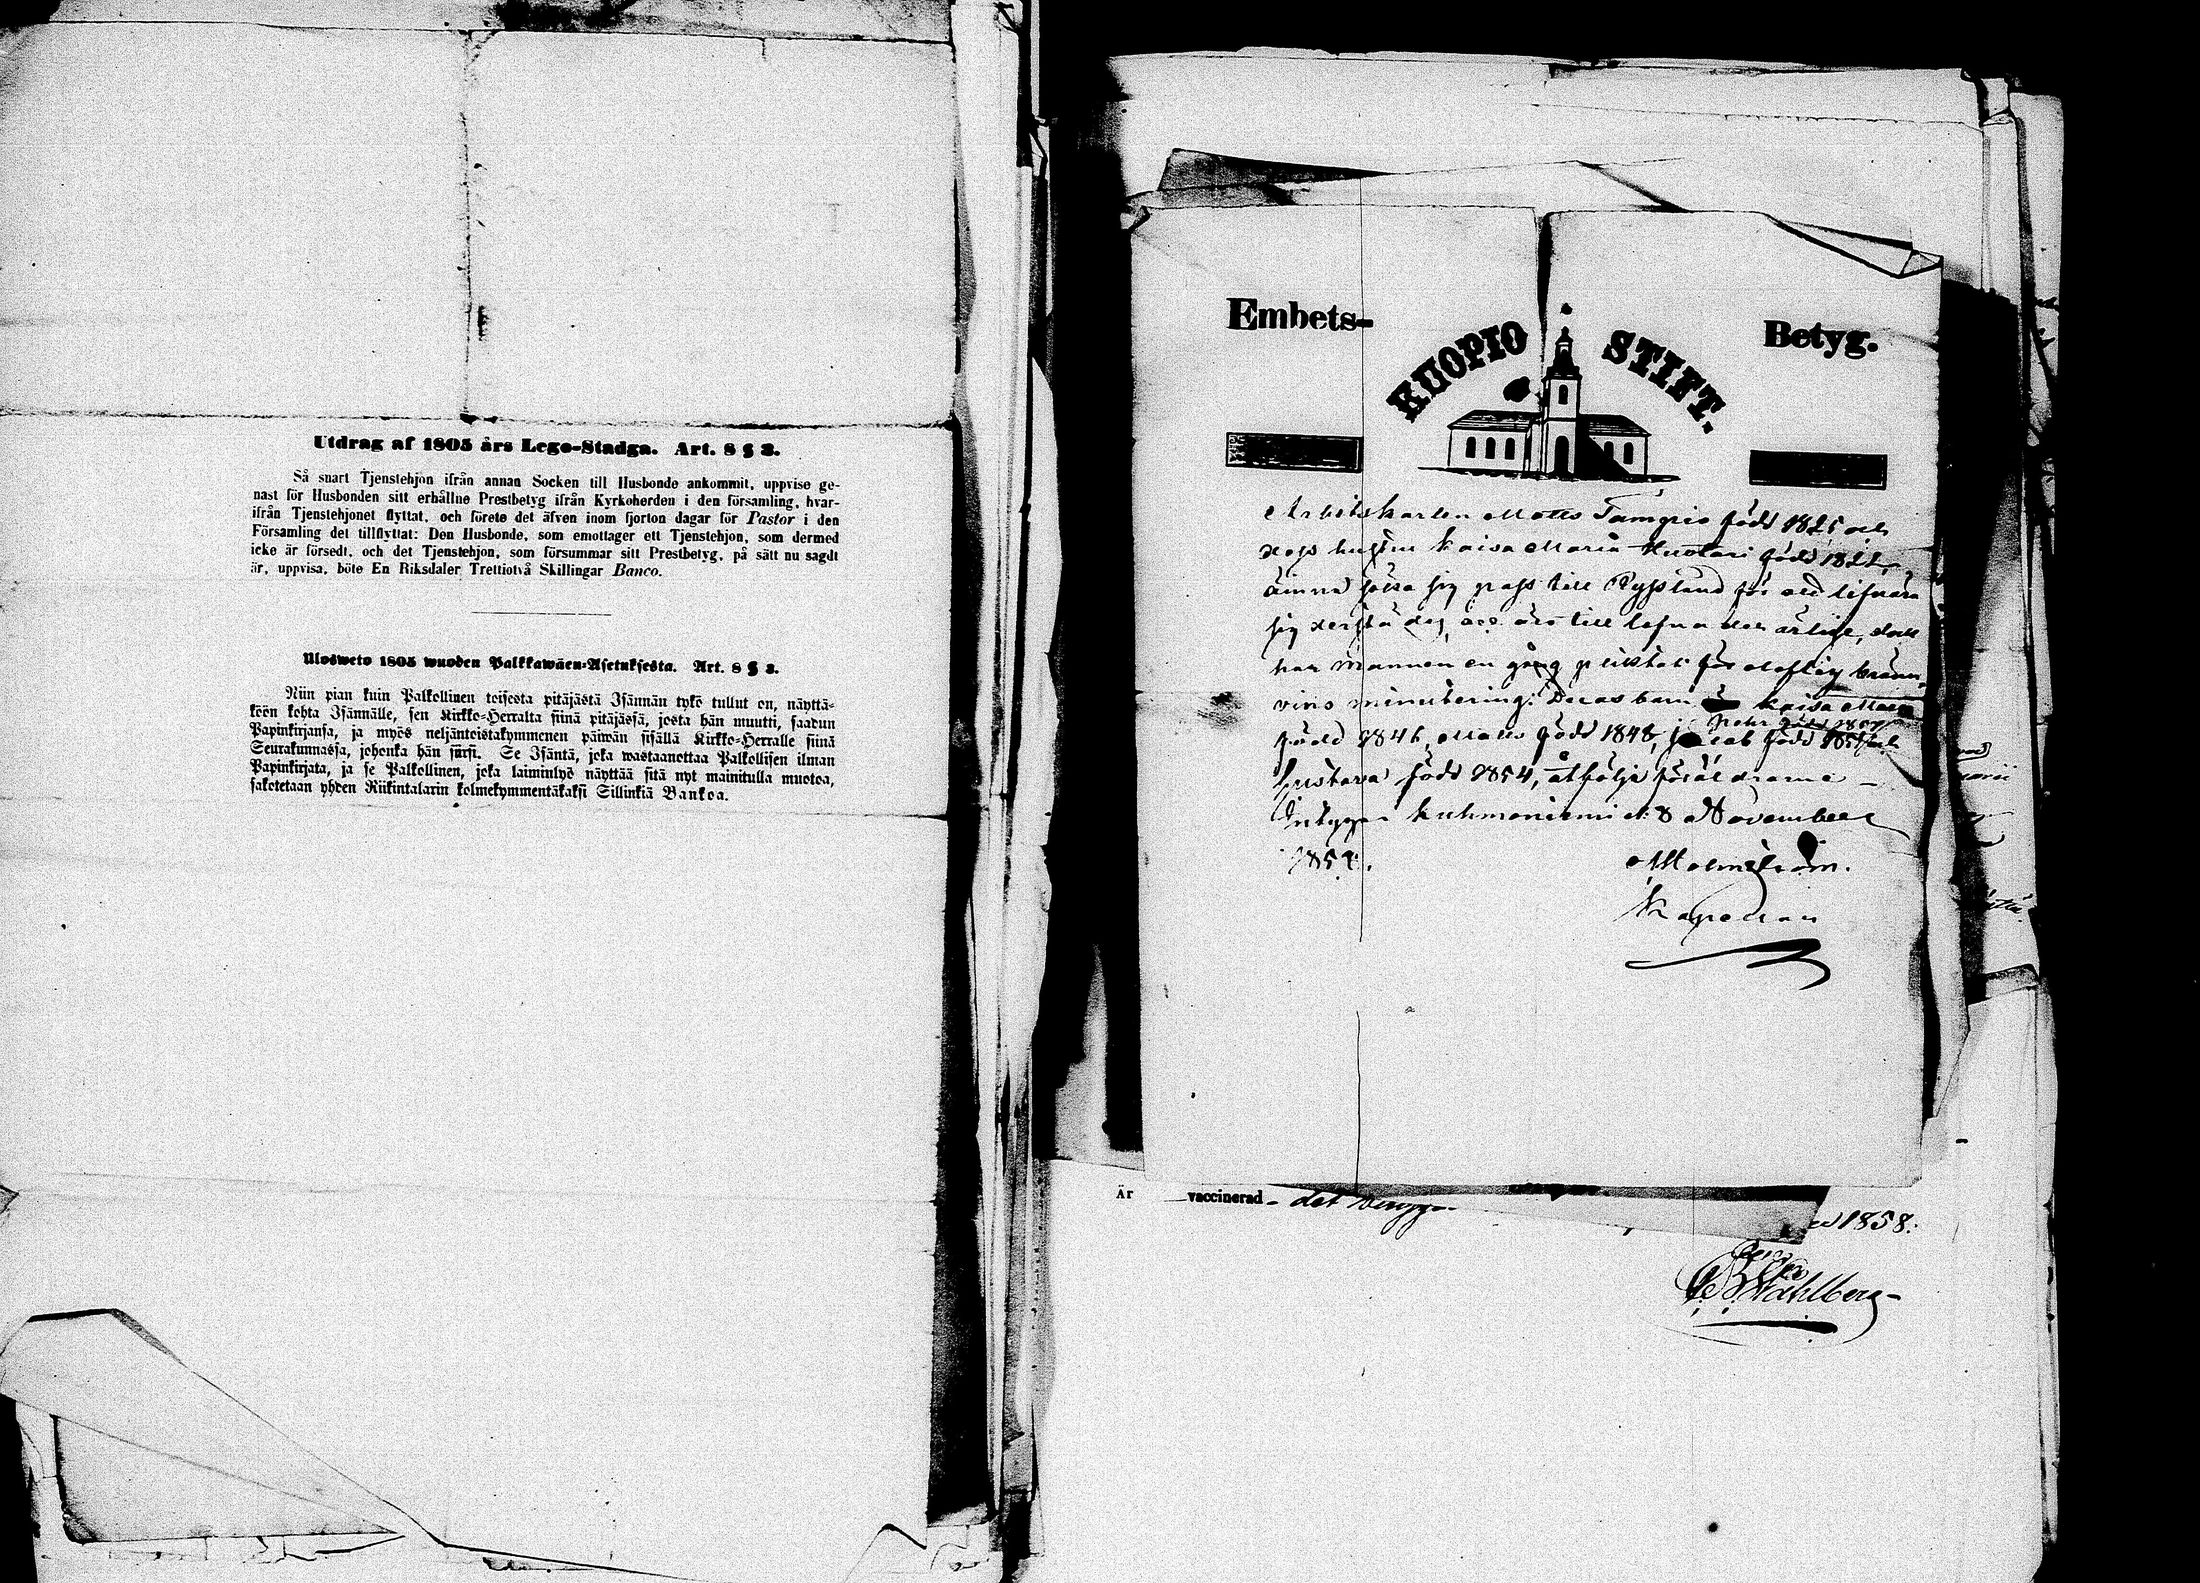 Utdrag af 1805 års Lego-Stadga. Art. 8 § 3.
Så snart Tjenstehjon ifrån annan Socken till Husbonde ankommit, uppvise ge-
nast för Husbonden sitt erhållne Prestbetyg ifrån Kyrkoherden i den församling, hvar-
ifrån Tjenstehjonet flyttat, och förete det äfven inom fjorton dagar för Pastor i den
Församling det tillflyttat: Den Husbonde, som emottager ett Tjenstehjon, som dermed
icke är försedt, och det Tjenstehjon, som försummar sitt Prestbetyg, på sätt nu sagdt
är, uppvisa, böte En Riksdaler Trettiotvå Skillingar Banco.
Ulosweto 1805 wuoden Palkkawäen-Asetuksesta. Art. 8 § 3.
Niin pian kuin Palkollinen toisesta pitäjästä Isännän tykö tullut on, näyttä-
köön kohta Isännälle, sen Kirkko-Herralta siinä pitäjässä, josta hän muutti, saadun
Papinkirjansa, ja myös neljäntoistakymmenen päiwän sisällä Kirkko-Herralle siinä
Seurakunnassa, johonka hän siirsi. Se Isäntä, joka wastaanottaa Palkollisen ilman
Papinkirjata, ja se Palkollinen, joka laiminlyö näyttää sitä nyt mainitulla muotoa,
sakotetaan yhden Riikintalarin kolmekymmentäkaksi Sillinkiä Bankoa.
Embets-
KUOPIO STIFT.
Betyg.
Arbetskarlen Matts Tampio född 1825 och
dess hustru Kaisa Maria Huotari född 1822,
ämna lösa sig pass till Ryssland för att lifnära
sig derstädes, är till lefnaden ärlige, dock
har mannen en gång pliktat för oloflig bränn-
vins minutering. Deras barn Kaisa Maria
Petter född
född 1846, Matts född 1848, Jacob född och
Gustava född 1854, åtfölja föräldrarne —
Intygar Kuhmoniemi d. 8 November
185
Holmström.
Kapellan
Är vaccinerad - det intygar
1858.
Wahlberg